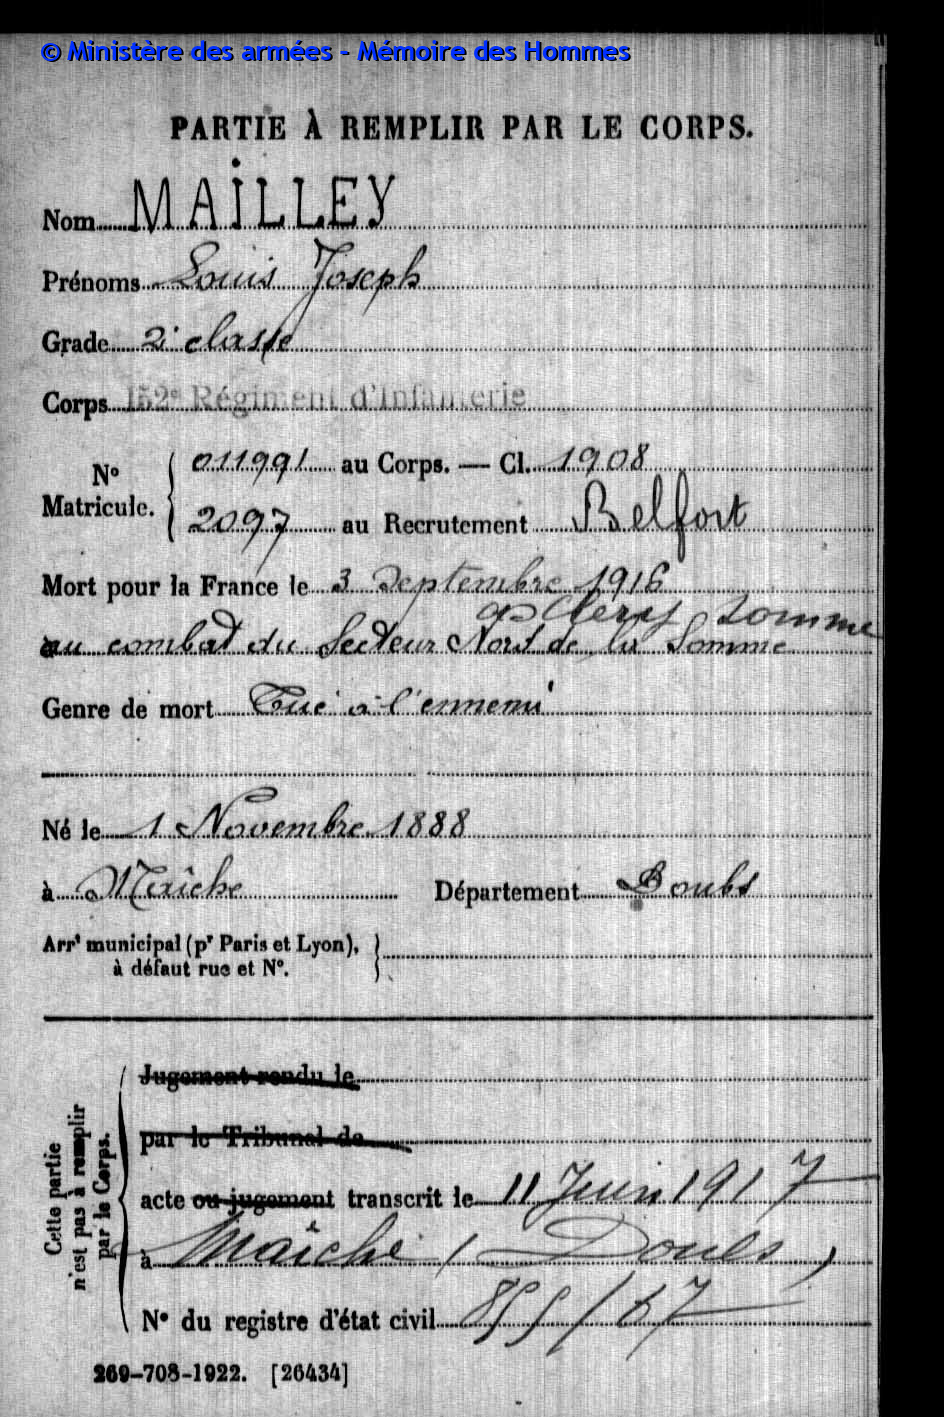 © Ministère des armées - Mémoire des Hommes
PARTIE À REMPLIR PAR LE CORPS.
Nom MAILLEY
Prénoms Louis Joseph
Grade 2e classe
Corps 152e Régiment d'Infanterie
N° Matricule. 011991 au Corps. — Cl. 1908
2097 au Recrutement Belfort
Mort pour la France le 3 Septembre 1916
à Clery Somme
au combat du Secteur Nord de la Somme
Genre de mort Tué à l'ennemi
Né le 1 Novembre 1888
à Maîche Département Doubs
Arrt municipal (pr Paris et Lyon),
à défaut rue et N°.
Cette partie
n'est pas à remplir
par le Corps.
Jugement rendu le
par le Tribunal de
acte ou jugement transcrit le 11 Juin 1917
à Maîche (Doubs)
N° du registre d'état civil
269-708-1922. [26434]